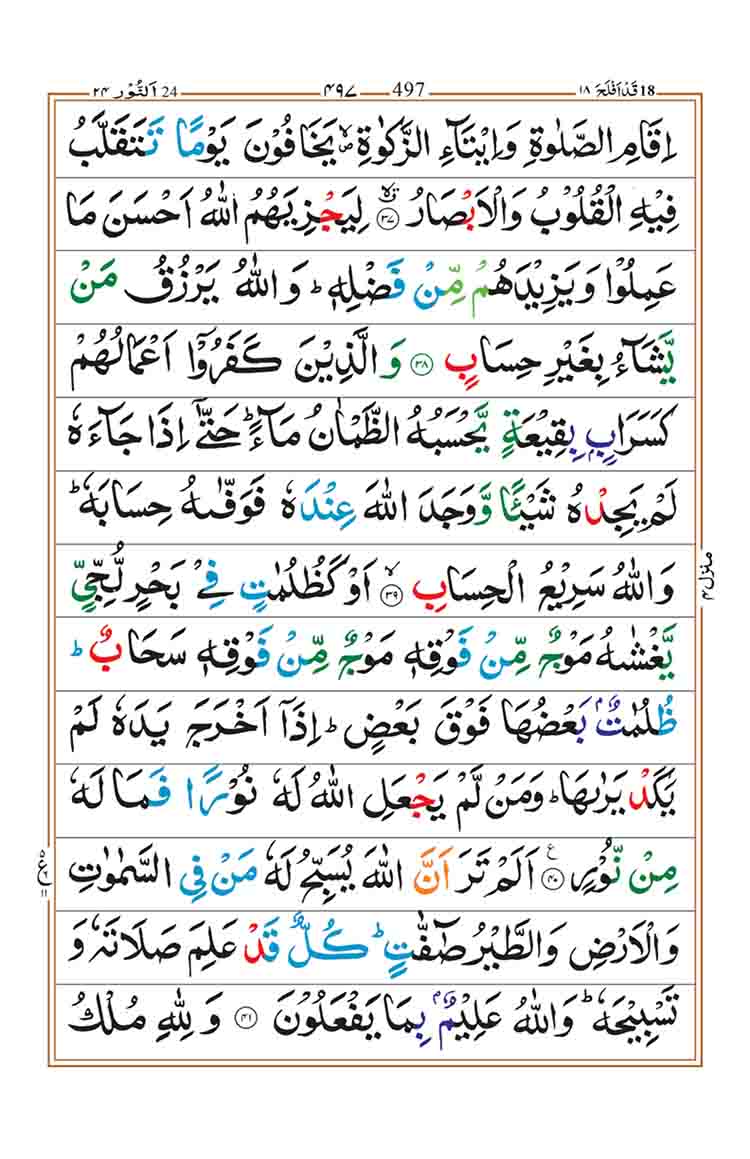 18 قَدْ اَفْلَحَ ١٨ 497 ۴۹۷ 24 اَلنُّوْر ۲۴
اِقَامِ الصَّلٰوةِ وَاِيْتَآءِ الزَّكٰوةِ ۙ يَخَافُوْنَ يَوْمًا تَتَقَلَّبُ
فِيْهِ الْقُلُوْبُ وَالْاَبْصَارُ ﴿۳۷﴾ لِيَجْزِيَهُمُ اللّٰهُ اَحْسَنَ مَا
عَمِلُوْا وَيَزِيْدَهُمْ مِّنْ فَضْلِهٖ ؕ وَاللّٰهُ يَرْزُقُ مَنْ
يَّشَآءُ بِغَيْرِ حِسَابٍ ﴿۳۸﴾ وَالَّذِيْنَ كَفَرُوْۤا اَعْمَالُهُمْ
كَسَرَابٍۭ بِقِيْعَةٍ يَّحْسَبُهُ الظَّمْاٰنُ مَآءً ؕ حَتّٰۤى اِذَا جَآءَهٗ
لَمْ يَجِدْهُ شَيْـًٔا وَّوَجَدَ اللّٰهَ عِنْدَهٗ فَوَفّٰىهُ حِسَابَهٗ ؕ
وَاللّٰهُ سَرِيْعُ الْحِسَابِ ۙ﴿۳۹﴾ اَوْ كَظُلُمٰتٍ فِيْ بَحْرٍ لُّجِّيٍّ
يَّغْشٰىهُ مَوْجٌ مِّنْ فَوْقِهٖ مَوْجٌ مِّنْ فَوْقِهٖ سَحَابٌ ؕ
ظُلُمٰتٌۢ بَعْضُهَا فَوْقَ بَعْضٍ ؕ اِذَاۤ اَخْرَجَ يَدَهٗ لَمْ
يَكَدْ يَرٰىهَا ؕ وَمَنْ لَّمْ يَجْعَلِ اللّٰهُ لَهٗ نُوْرًا فَمَا لَهٗ
مِنْ نُّوْرٍ ﴿۴۰﴾ اَلَمْ تَرَ اَنَّ اللّٰهَ يُسَبِّحُ لَهٗ مَنْ فِي السَّمٰوٰتِ
وَالْاَرْضِ وَالطَّيْرُ صٰٓفّٰتٍ ؕ كُلٌّ قَدْ عَلِمَ صَلَاتَهٗ وَ
تَسْبِيْحَهٗ ؕ وَاللّٰهُ عَلِيْمٌۢ بِمَا يَفْعَلُوْنَ ﴿۴۱﴾ وَلِلّٰهِ مُلْكُ
منزل ۴